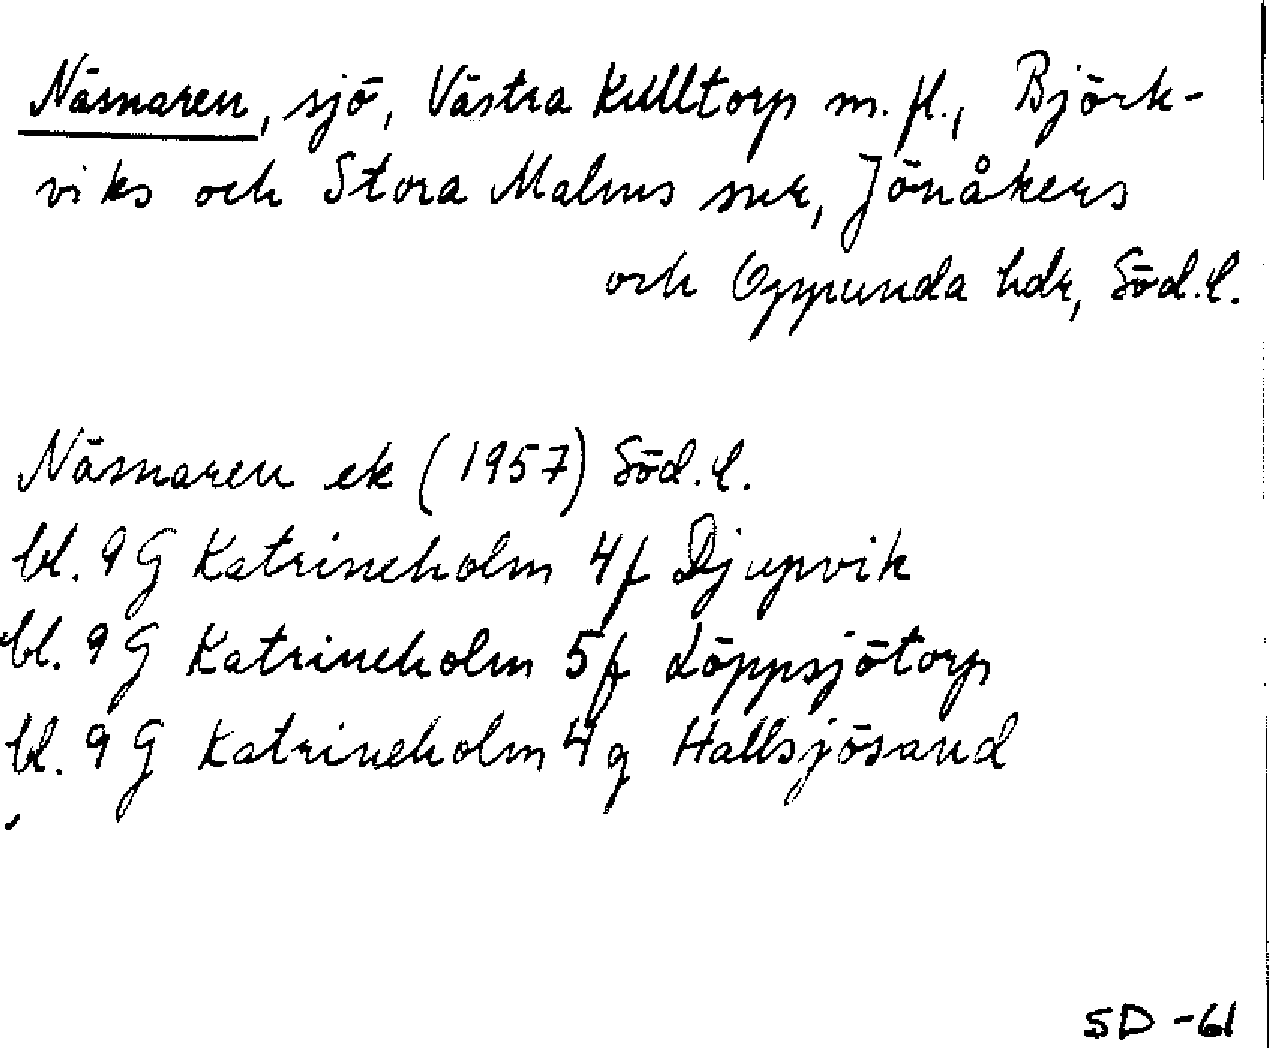 Näsnaren, sjö, Västra Kulltorp m. fl., Björk-
viks och Stora Malms snr, Jönåkers
och Oppunda hdr, Söd.l.
Näsnaren ek (1957) Söd.l.
bl. 9 G Katrineholm 4f Djupvik
bl. 9 G Katrineholm 5f Löppsjötorp
bl. 9 G Katrineholm 4g Hallsjösand
SD -61